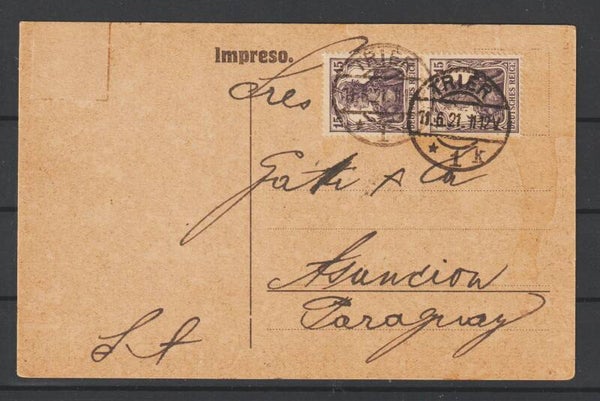 Impreso.
15 15
DEUTSCHES REICH
TRIER
1
15
DEUTSCHES REICH
TRIER
11.6.21. 11-12 V
* 1 k
Sres
Gatti & Co
Asuncion
Paraguay
S A